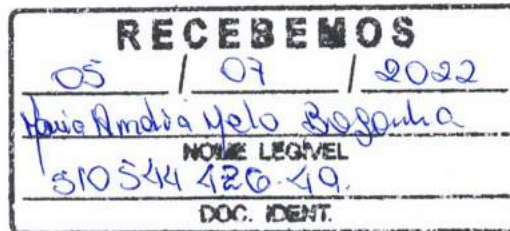 RECEBEMOS
05 / 07 / 2022
Maria Amélia Melo
NOME LEGÍVEL
510544 426-49.
DOC. IDENT.